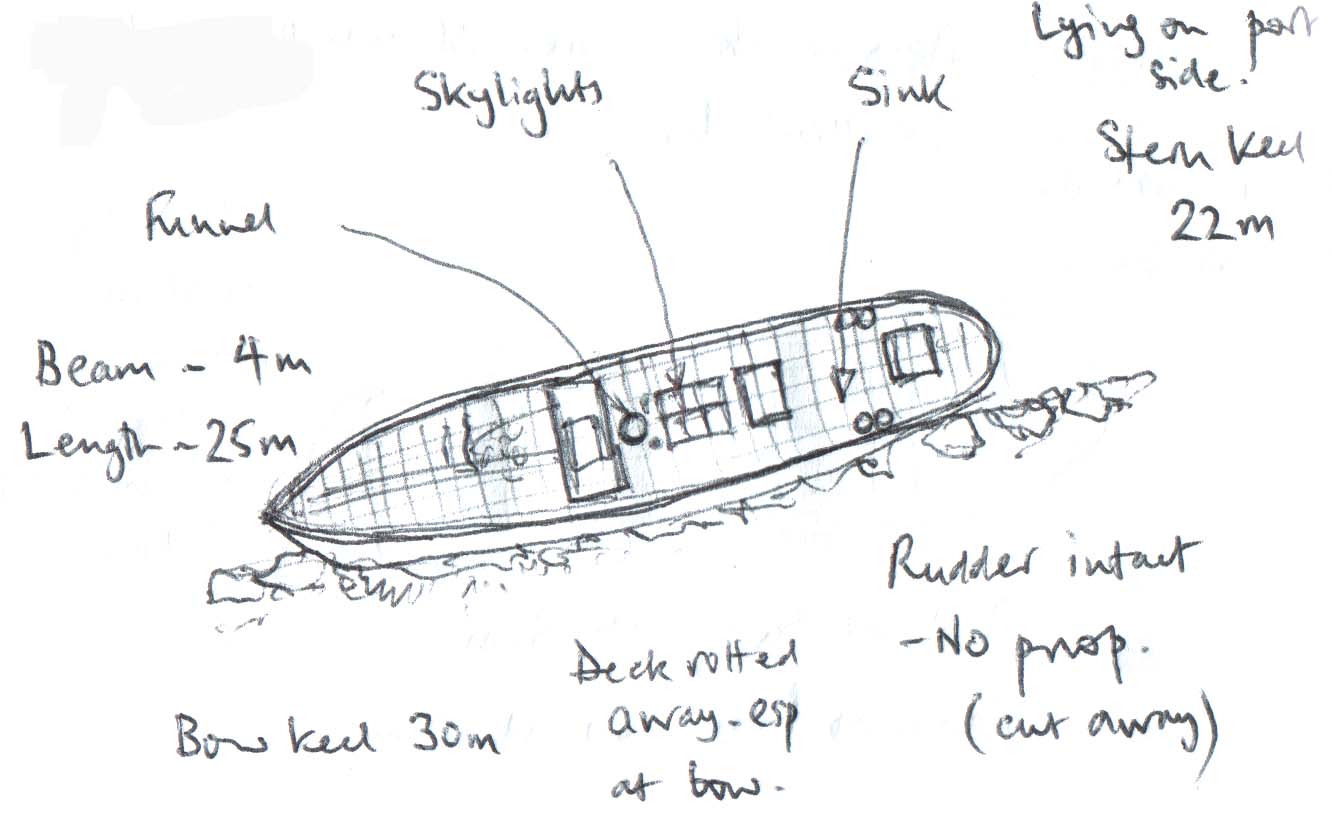 Lying on port
side.
Skylights
Sink
Stern keel
22m
Funnel
Beam - 4m
Length - 25m
Rudder intact
- No prop.
(cut away)
Deck rotted
away - esp
at bow.
Bow keel 30m